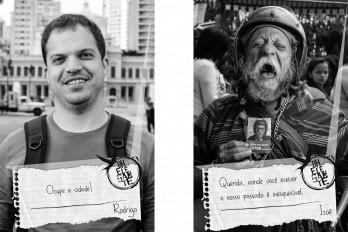 Ocupe a cidade!
Rodrigo
Querida, aonde você estiver
o nosso passado é inesquecível.
Isoé